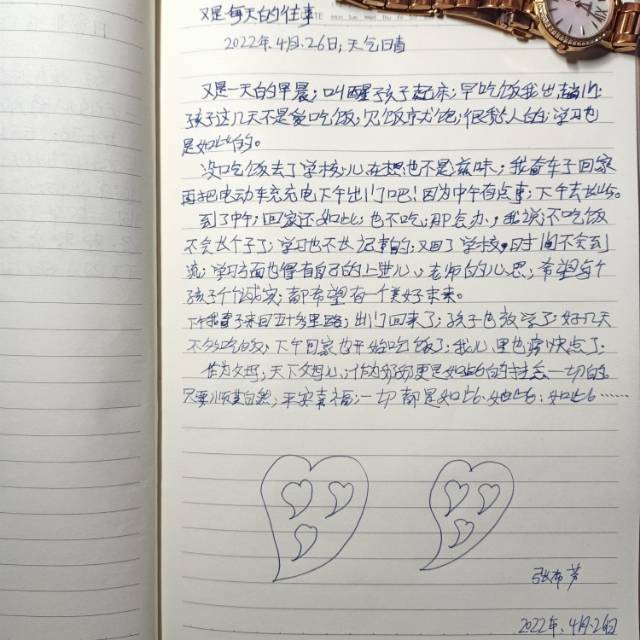 又是每天的往事
2022年4月.26日,天气日青
又是一天的早晨;叫醒孩子起床;早吃饭我出
孩子这几天不是爱吃饭;见饭就饱;很愁人的;学习也
是如此的。
没吃饭去了学校心在想也不是滋味;我奋车子回家
再把电动车充充电下午出门吧!因为中午有点事;下午去
到了中午;回家还如此;也不吃;那怎办;我说不吃饭
不会长个子了;学习也不长记事的;又回了学校;时间不会到
流;学习方面也得有自己的上进心;老师的心思;希望每个
孩子个个成家;都希望有一个美好未来。
下午我奋子来回五十多里路;出门回来了;孩子也放学了;好几天
不么吃饭;下午回家也开始吃饭了;我心里也爽快点了;
作为父母;天下父母心;更是如此的一切的
只要顺其自然;平安幸福;一切都是如此;如此;如此……
张布芳
2022年.4月.26日